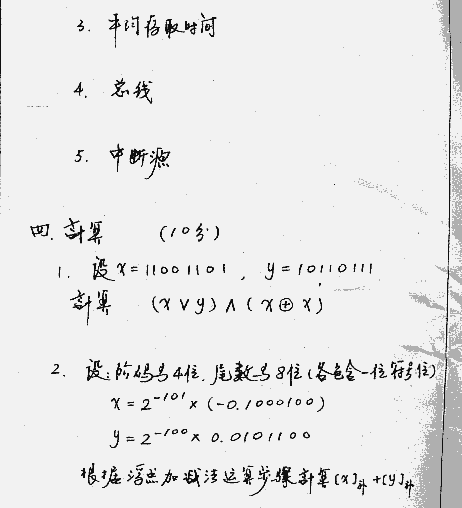 3. 平均存取时间
4. 总线
5. 中断源
四. 计算 (10分)
1. 设 x=11001101, y=10110111
计算 (x∨y)∧(x⊕x)
2. 设:阶码为4位,尾数为8位(各包含一位符号位)
x=2⁻¹⁰¹×(-0.1000100)
y=2⁻¹⁰⁰×0.0101100
根据浮点加减法运算步骤计算[x]补+[y]补